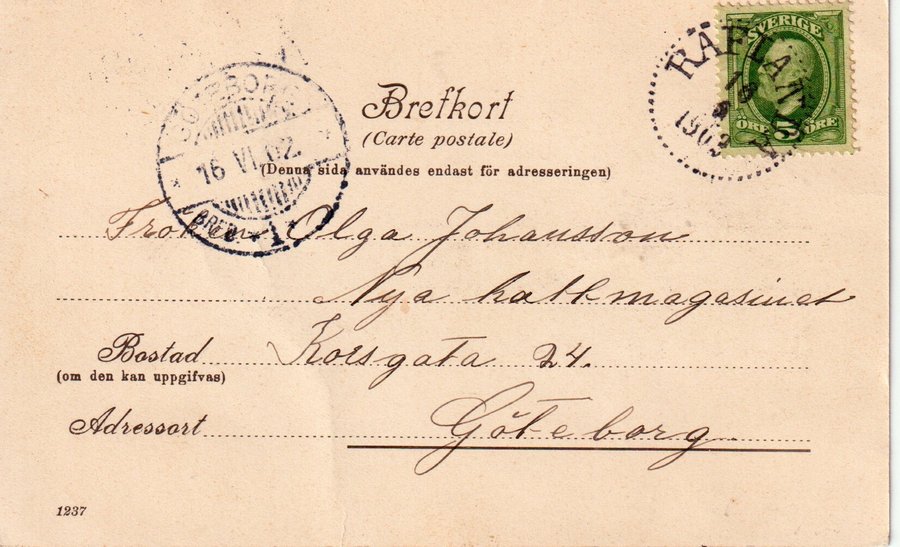 SVERIGE
5
ÖRE ÖRE
1902
GÖTEBORG
16 VI. 02.
BREF.
1
Brefkort
(Carte postale)
(Denna sida användes endast för adresseringen)
Fröken Olga Johansson
Nya hattmagasinet
Bostad Korsgata 24.
(om den kan uppgifvas)
Adressort Göteborg
1237